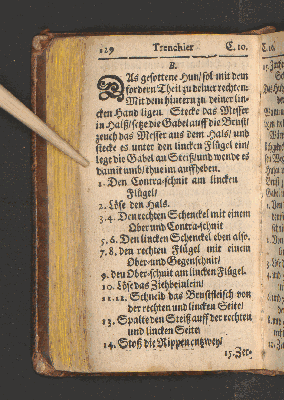 129 Trenchier C. 10.
B.
DAs gesottene Hun/ sol mit dem
fordern Theil zu deiner rechten:
Mit dem hintern zu deiner lin-
cken Hand ligen. Stecke das Messer
in Halß/ setze die Gabel auff die Brust/
zeuch das Messer aus dem Hals/ und
stecke es unter den lincken Flügel ein/
lege die Gabel an Steiß/ und wende es
damit umb/ thue im auffheben.
1. Den Contra-schnit am lincken
Flügel/
2. Löse den Hals.
3. 4. Den rechten Schenckel mit einem
Ober und Contra-schnit
5. 6. Den lincken Schenckel eben also.
7. 8. den rechten Flügel mit einem
Ober-und Gegenschnit/
9. den Ober-schnit am lincken Flügel.
10. Löse das Ziehbeinlein/
11. 12. Schneid das Brustfleisch von
der rechten und lincken Seite/
13. Spalte den Steiß auff der rechten
und lincken Seite
14. Stoß die Rippen entzwey/
15. Zer-